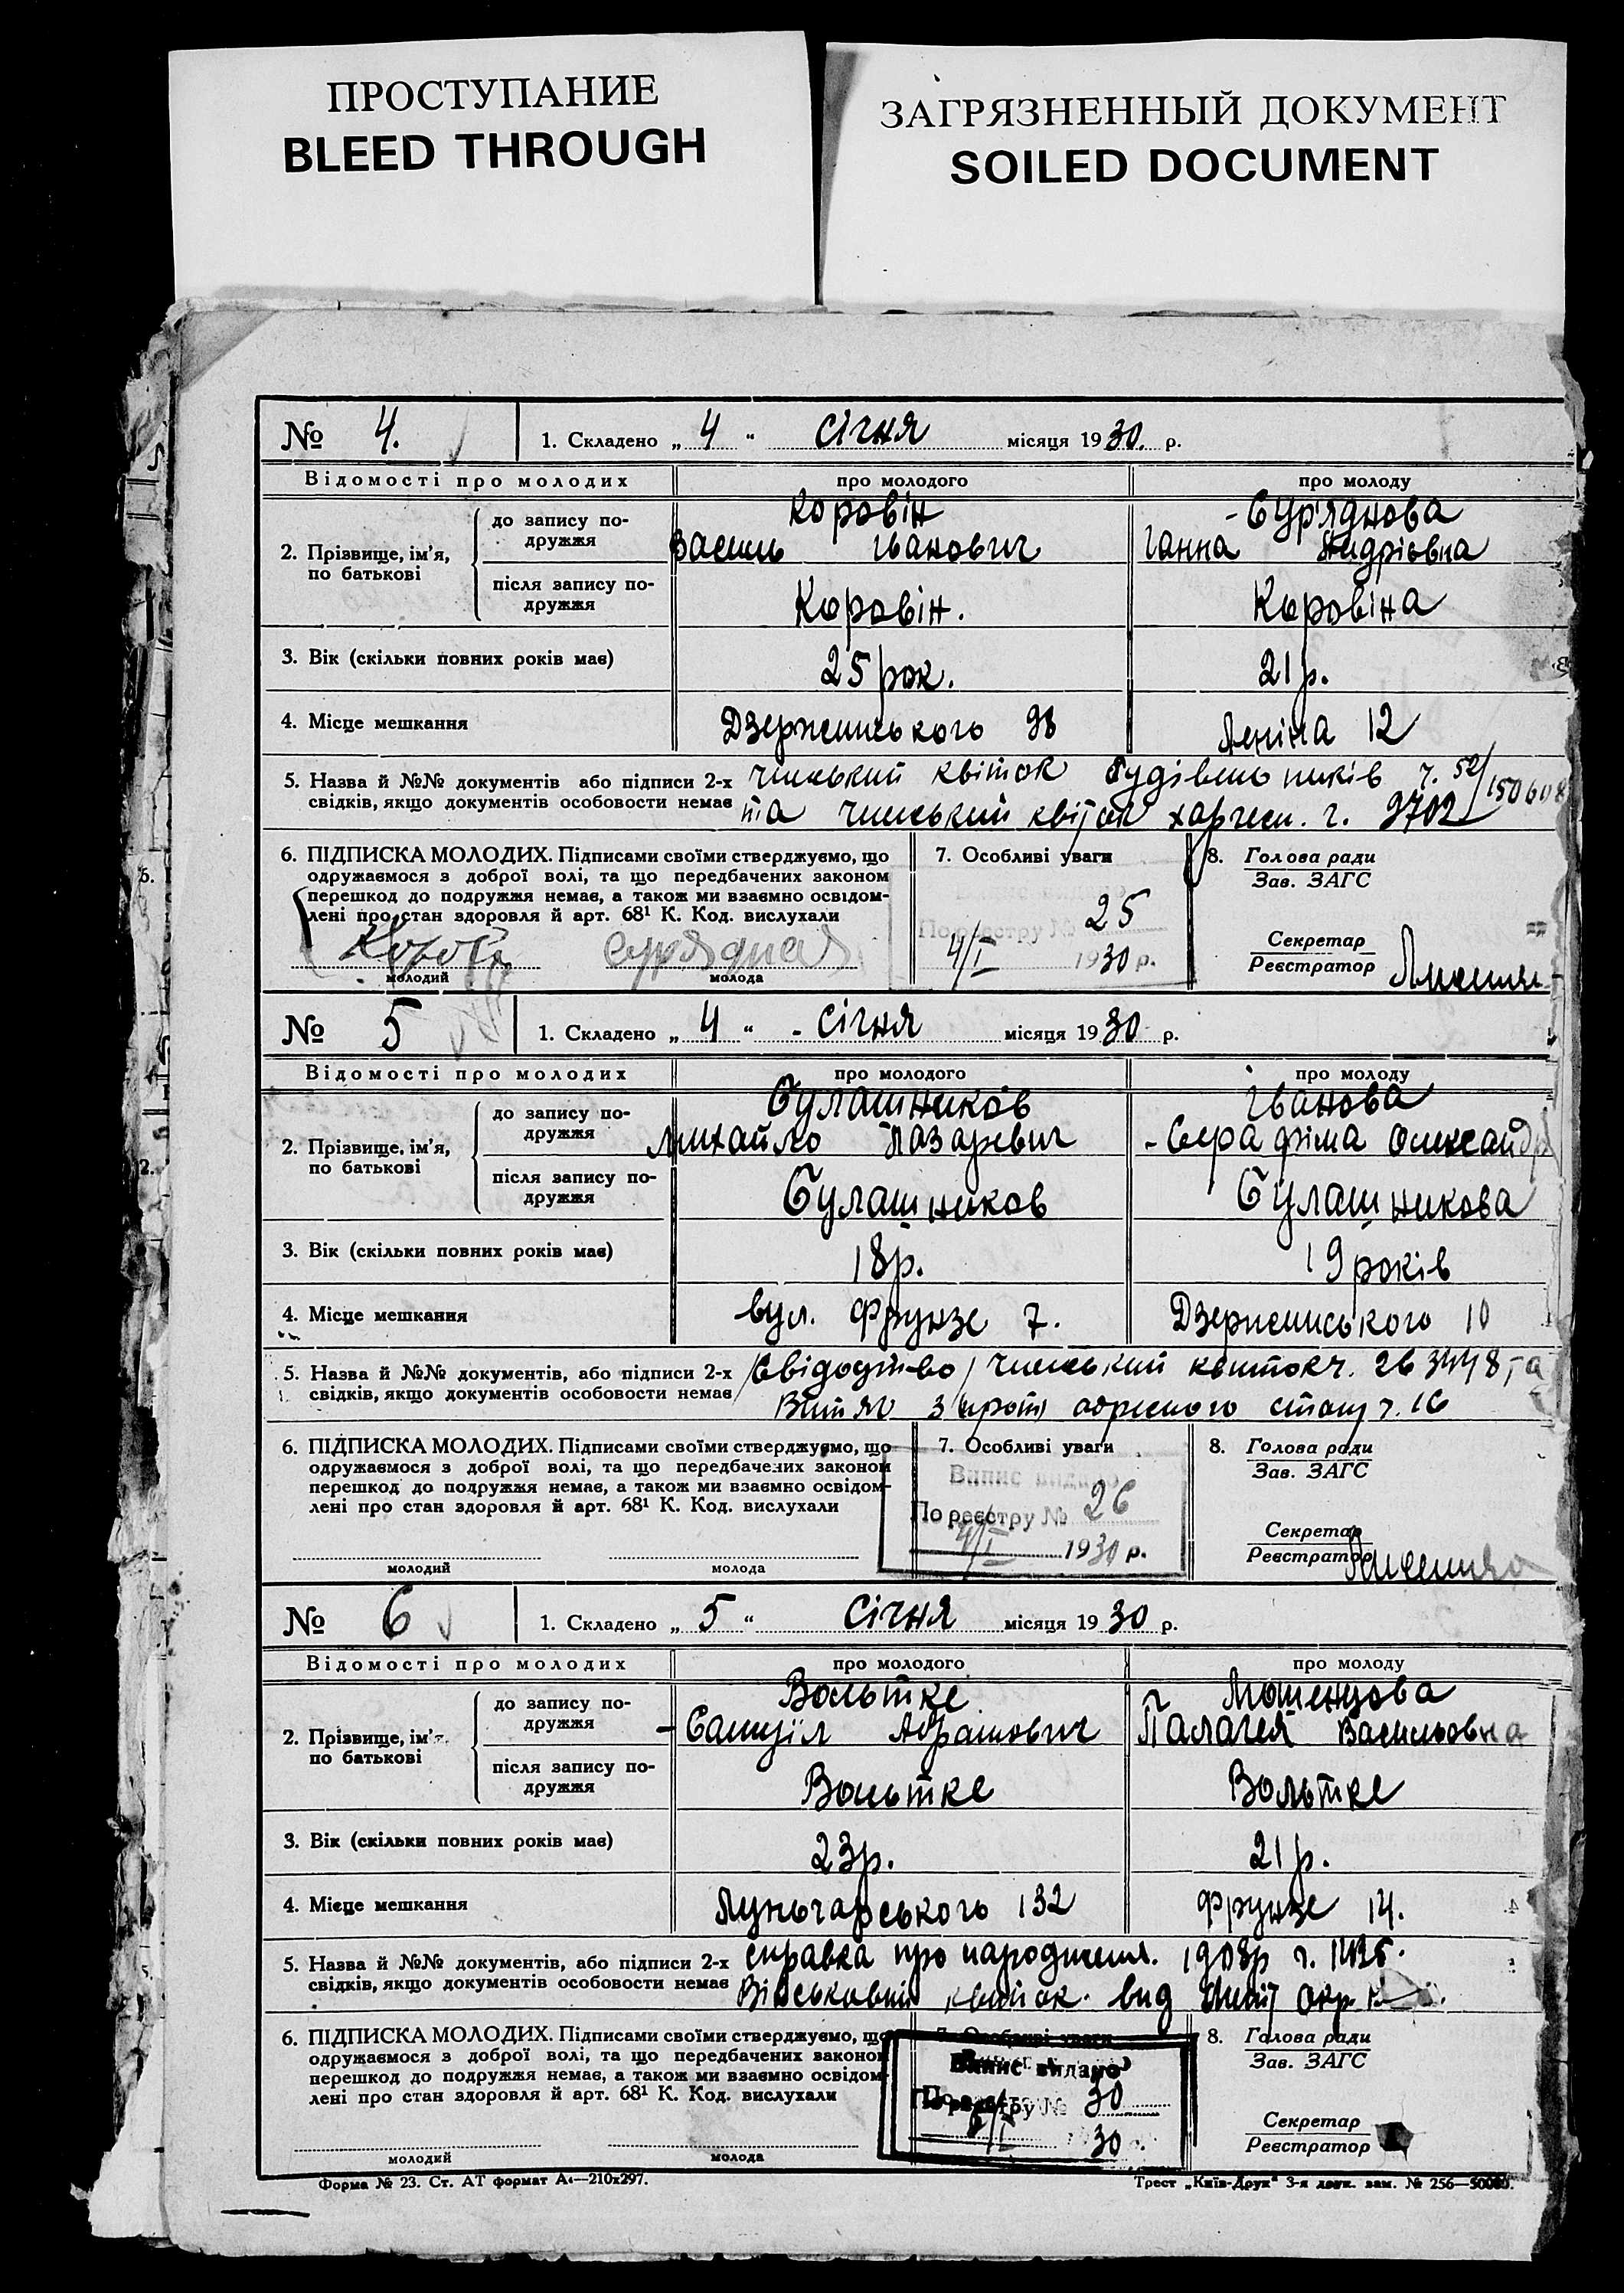 ПРОСТУПАНИЕ
BLEED THROUGH
ЗАГРЯЗНЕННЫЙ ДОКУМЕНТ
SOILED DOCUMENT
№ 4. 1. Складено „ 4 “ січня місяця 1930. р.
Відомості про молодих про молодого про молоду
2. Прізвище, ім’я, по батькові
до запису по-дружжя
Коровін
Василь Іванович
Сур'яднова
Ганна Андріовна
після запису по-дружжя
Коровін.
Коровіна
3. Вік (скільки повних років має) 25 рок. 21 р.
4. Місце мешкання Дзержинського 98 Леніна 12
5. Назва й №№ документів або підписи 2-х членський квіток будівельників ч. 52/150608
свідків, якщо документів особовости немає та членський квіток харчсм. ч. 9702
6. ПІДПИСКА МОЛОДИХ. Підписами своїми стверджуємо, що
одружаємося з доброї волі, та що передбачених законом
перешкод до подружжя немає, а також ми взаємно освідом-
лені про стан здоровля й арт. 68¹ К. Код. вислухали
молодий молода
7. Особливі уваги
По реєстру № 25
4/I 1930 р.
8. Голова ради
Зав. ЗАГС
Секретар
Реєстратор
№ 5 1. Складено „ 4 “ січня місяця 1930 р.
Відомості про молодих про молодого про молоду
2. Прізвище, ім’я, по батькові
до запису по-дружжя
Булашников
Михайло Лазаревич
Іванова
Серафіма Олександр
після запису по-дружжя
Булашников
Булашникова
3. Вік (скільки повних років має) 18 р. 19 років
4. Місце мешкання вул. Фрунзе 7. Дзержинського 10
5. Назва й №№ документів, або підписи 2-х /Свідоцтво/ членський квиток ч. 263448, та
свідків, якщо документів особовости немає Витяг з адресного столу ч. 16
6. ПІДПИСКА МОЛОДИХ. Підписами своїми стверджуємо, що
одружаємося з доброї волі, та що передбачених законом
перешкод до подружжя немає, а також ми взаємно освідом-
лені про стан здоровля й арт. 68¹ К. Код. вислухали
молодий молода
7. Особливі уваги
Випис видано
По реєстру № 26
4/I 1930 р.
8. Голова ради
Зав. ЗАГС
Секретар
Реєстратор
№ 6 1. Складено „ 5 “ січня місяця 1930 р.
Відомості про молодих про молодого про молоду
2. Прізвище, ім’я, по батькові
до запису по-дружжя
Вольтке
Самуїл Абрамович
Мошенцова
Палагея Васильовна
після запису по-дружжя
Вольтке
Вольтке
3. Вік (скільки повних років має) 23 р. 21 р.
4. Місце мешкання Луначарського 132 Фрунзе 14.
5. Назва й №№ документів, або підписи 2-х справка про народження. 1908р ч. 1425.
свідків, якщо документів особовости немає Військовий квиток. вид окр.
6. ПІДПИСКА МОЛОДИХ. Підписами своїми стверджуємо, що
одружаємося з доброї волі, та що передбачених законом
перешкод до подружжя немає, а також ми взаємно освідом-
лені про стан здоровля й арт. 68¹ К. Код. вислухали
молодий молода
7. Особливі уваги
Випис видано
По реєстру № 30
30
8. Голова ради
Зав. ЗАГС
Секретар
Реєстратор
Форма № 23. Ст. АТ формат А₄—210х297.
Трест „Київ-Друк“ 3-я друк. зам. № 256—50000.